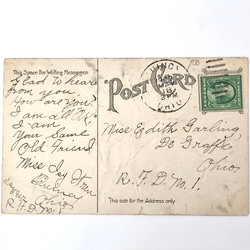 This Space For Writing Messages
POST CARD
QUINCY
OHIO
Glad to hear
from you.
How are you
I am all O.K.
I am
Your Same
Old Friend
Miss
Quincy
Ohio
R.F.D. No. 1
Miss Edith Garling
De Graff
Ohio
R. F. D. No. 1.
This side for the Address only